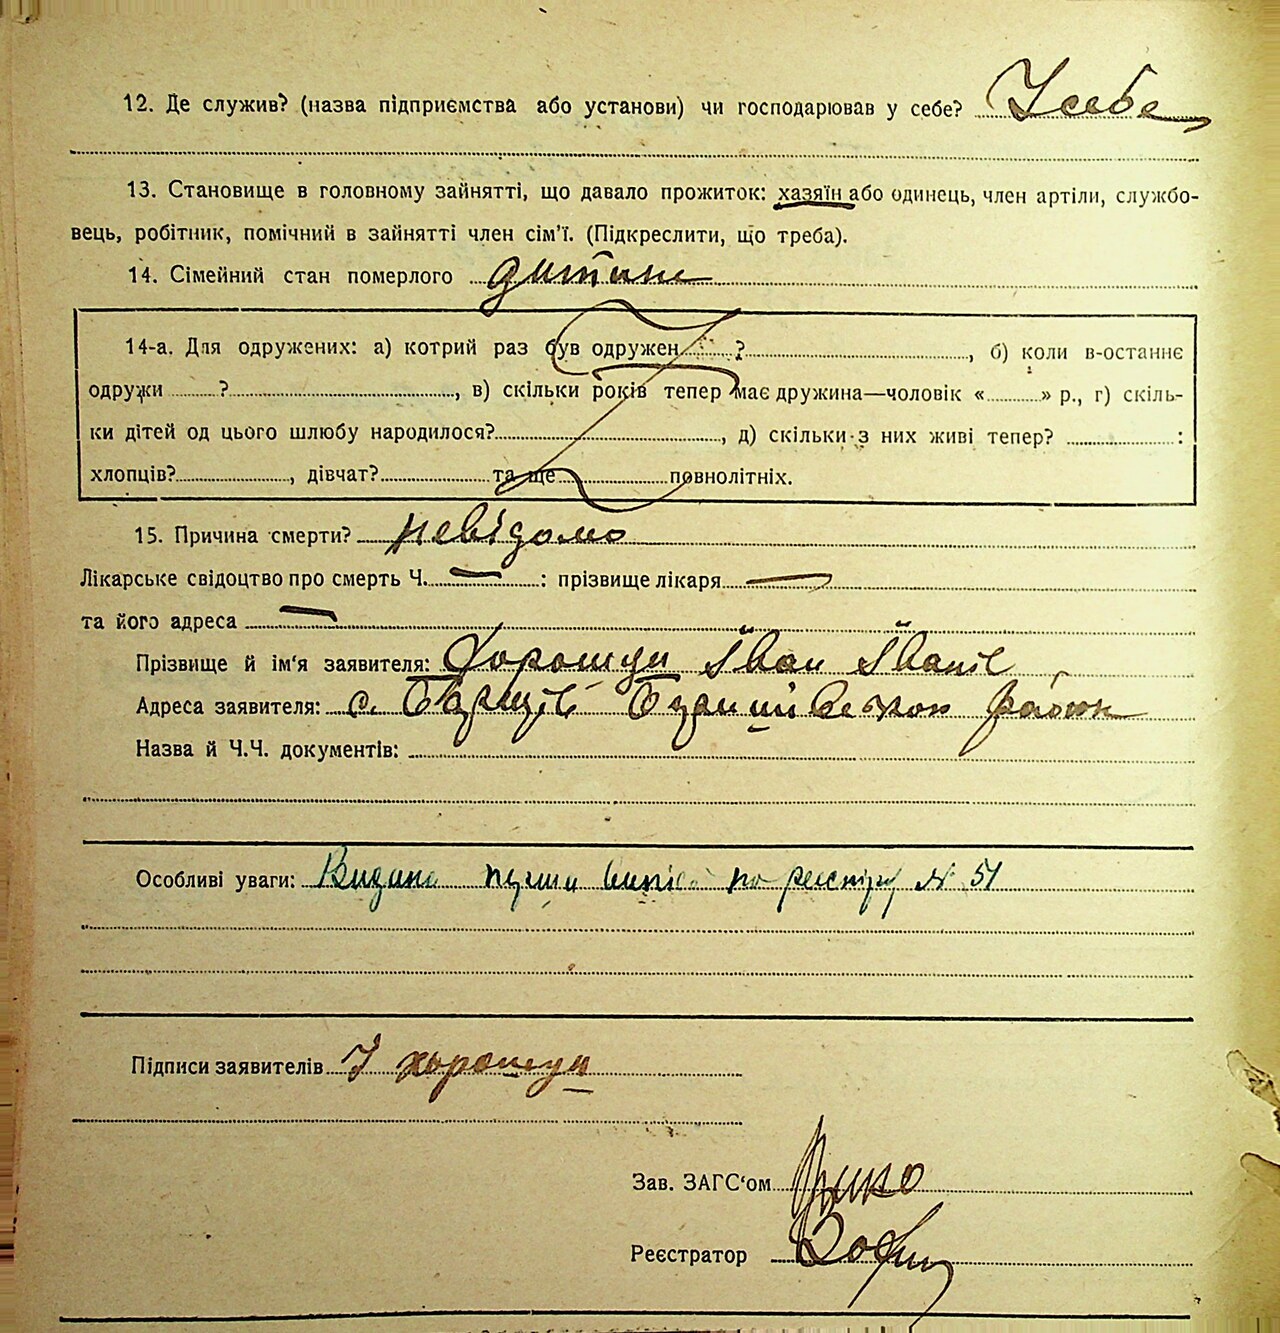 12. Де служив? (назва підприємства або установи) чи господарював у себе? У себе
13. Становище в головному зайнятті, що давало прожиток: хазяїн або одинець, член артіли, службо-
вець, робітник, помічний в зайнятті член сім'ї. (Підкреслити, що треба).
14. Сімейний стан померлого дитина
14-а. Для одружених: а) котрий раз був одружен ?, б) коли в-останнє
одружи ?, в) скільки років тепер має дружина—чоловік « » р., г) скіль-
ки дітей од цього шлюбу народилося?, д) скільки з них живі тепер? :
хлопців?, дівчат? та ще повнолітніх.
15. Причина смерти? невідомо
Лікарське свідоцтво про смерть Ч. — : прізвище лікаря —
та його адреса —
Прізвище й ім'я заявителя: Іван
Адреса заявителя: с. район
Назва й Ч.Ч. документів:
Особливі уваги: Видана по реєстру № 51
Підписи заявителів І
Зав. ЗАГС'ом
Реєстратор